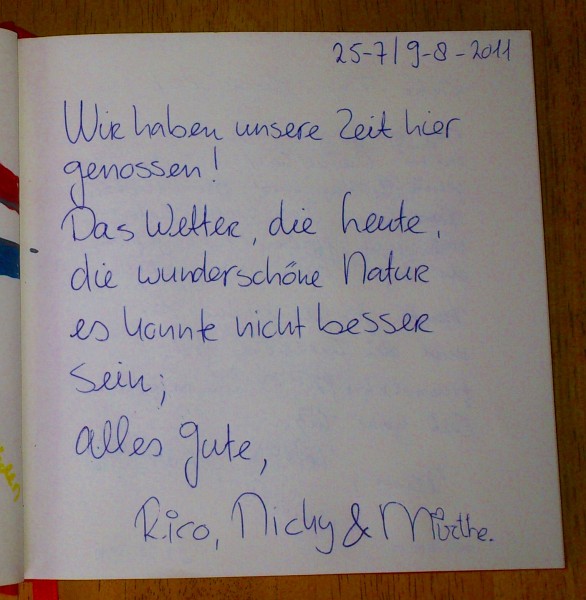 25-7/9-8-2011
Wir haben unsere Zeit hier
genossen!
Das Wetter, die heute,
die wunderschöne Natur
es konnte nicht besser
sein;
alles gute,
Rico, Nicky & Mirthe.